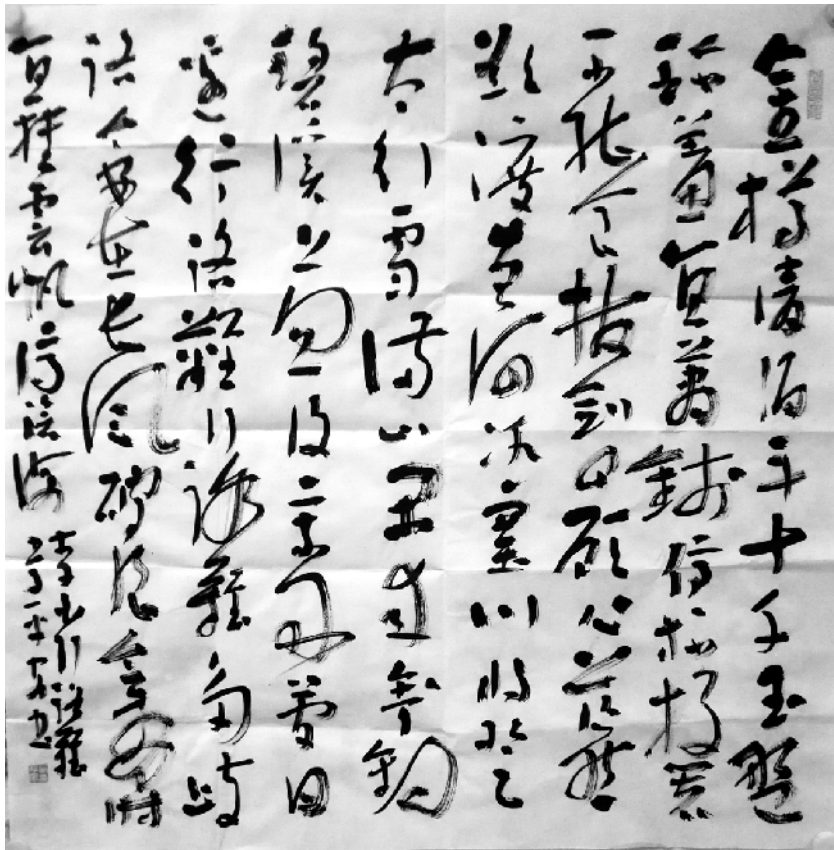 金樽清酒斗十千玉盤
珍羞直萬錢停杯投箸
不能食拔劍四顧心茫然
欲渡黃河冰塞川將登
太行雪滿山閑來垂釣
碧溪上忽復乘舟夢日
邊行路難行路難多歧
路今安在長風破浪會有時
直掛雲帆濟滄海
李白行路難
書